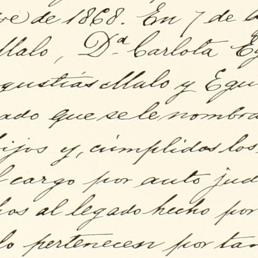 bre de 1868. En 7 de
Malo, D.ª Carlota Eg
gustias Malo y Egu
ado que se le nombra
hijos y, cumplidos los
l cargo por auto jud
hos al legado hecho por
lo pertenecen por tan